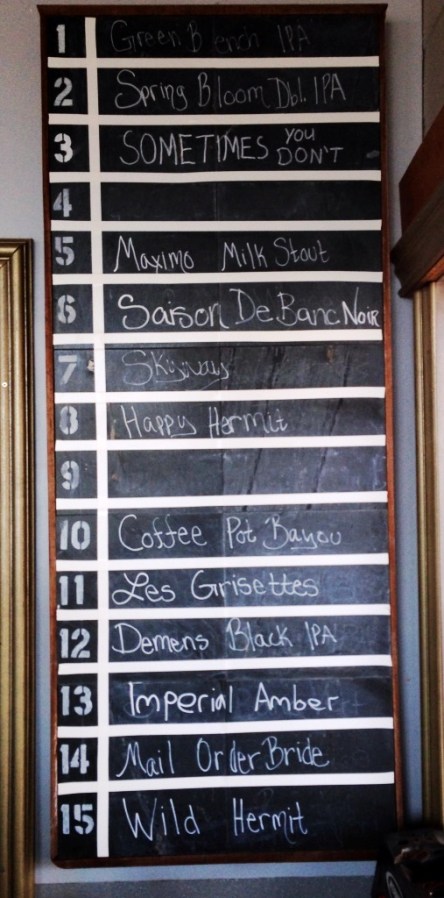 1 Green Bench IPA
2 Spring Bloom Dbl. IPA
3 SOMETIMES YOU DON'T
4
5 Maximo Milk Stout
6 Saison De Banc Noir
7 Skyway
8 Happy Hermit
9
10 Coffee Pot Bayou
11 Les Grisettes
12 Demens Black IPA
13 Imperial Amber
14 Mail Order Bride
15 Wild Hermit